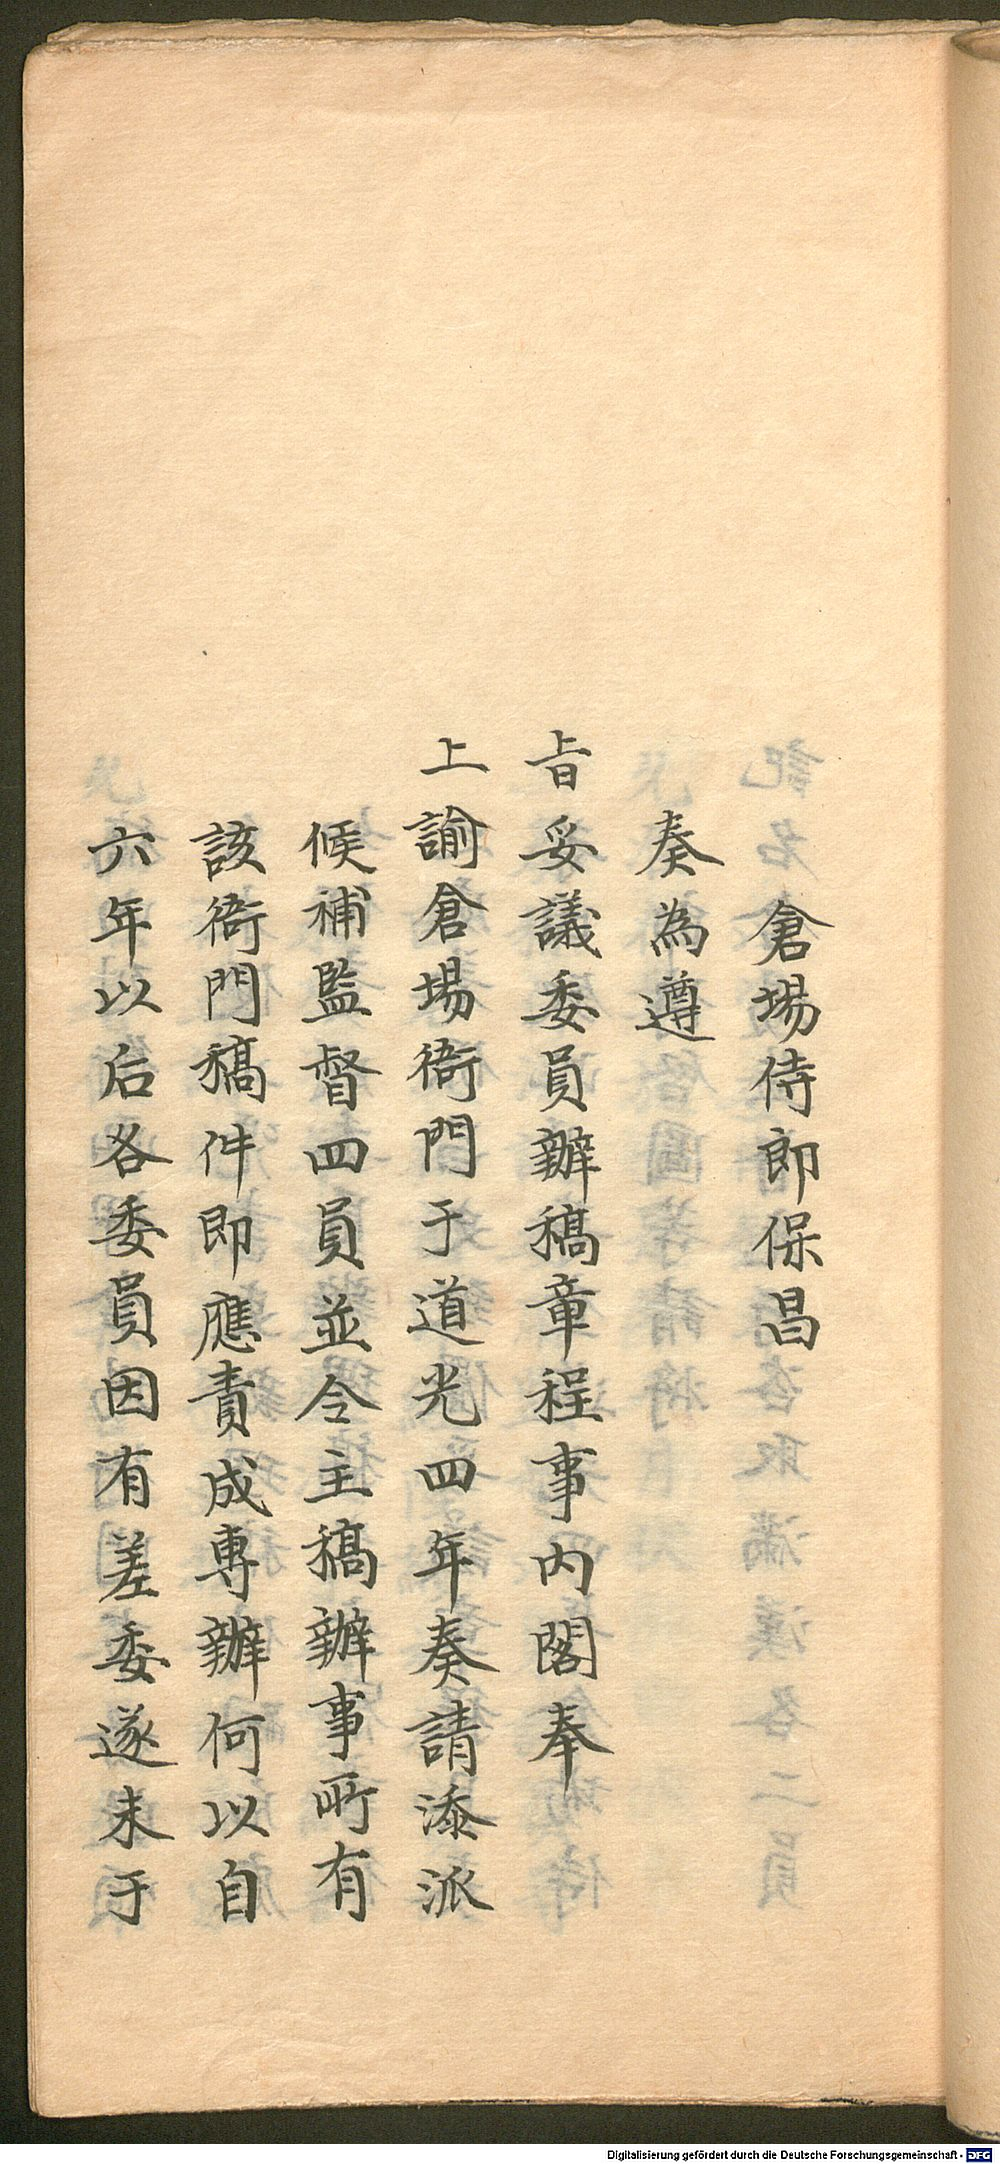 倉場侍郎保昌
奏為遵
旨妥議委員辦稿章程事内閣奉
上諭倉場衙門于道光四年奏請添派
候補監督四員並令主稿辦事所有
該衙門稿件即應責成專辦何以自
六年以后各委員因有差委遂未于
Digitalisierung gefördert durch die Deutsche Forschungsgemeinschaft - DFG